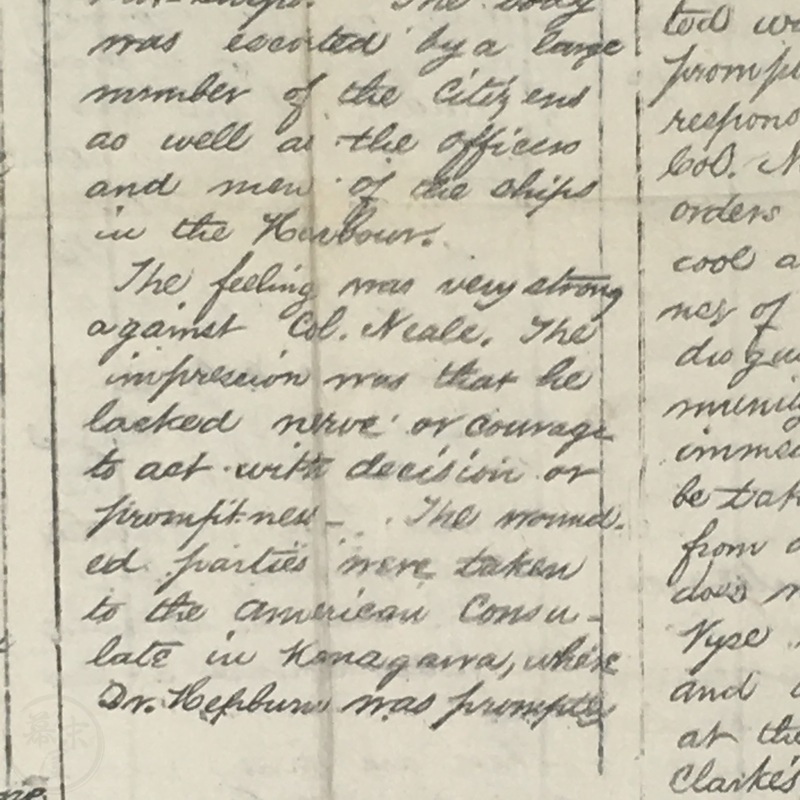 The body
was escorted by a large
number of the Citizens
as well as the officers
and men of the ships
in the Harbour.
The feeling was very strong
against Col. Neale. The
impression was that he
lacked nerve or courage
to act with decision or
promptness. The wound-
ed parties were taken
to the American Consu-
late in Kanagawa, where
Dr. Hepburn was promptly
ted
promp
respons
Col. N
orders
cool a
ness of
disgu
munity
immed
be tak
from
does
Vyse
and
at the
Clarke's